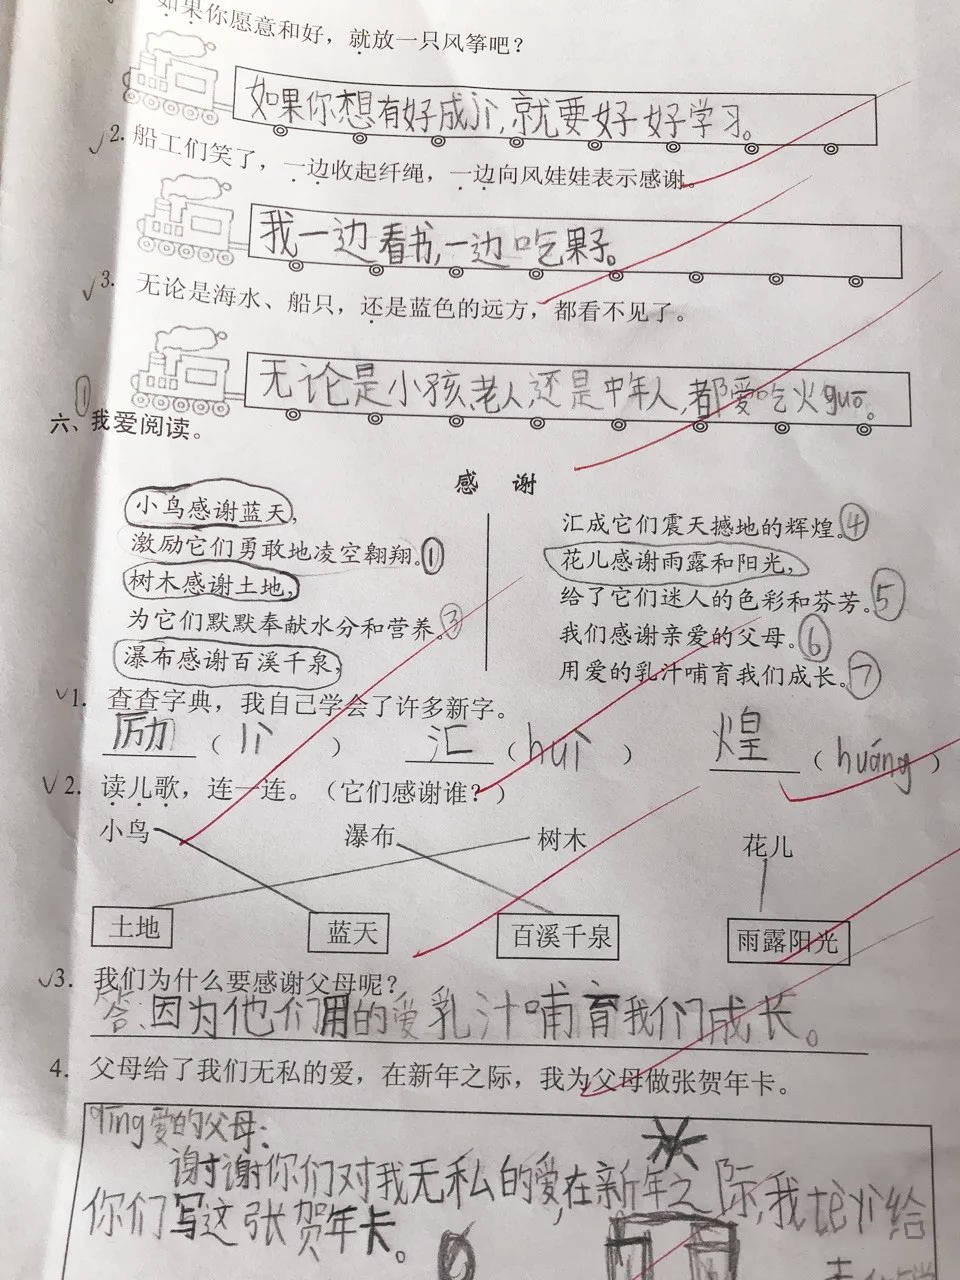 如果你愿意和好，就放一只风筝吧？
如果你想有好成jì,就要好好学习。
2. 船工们笑了，一边收起纤绳，一边向风娃娃表示感谢。
我一边看书,一边吃果子。
3. 无论是海水、船只，还是蓝色的远方，都看不见了。
无论是小孩、老人,还是中年人,都爱吃火guō。
①
六、我爱阅读。
感 谢
小鸟感谢蓝天，
激励它们勇敢地凌空翱翔。①
树木感谢土地，
为它们默默奉献水分和营养。③
瀑布感谢百溪千泉，
汇成它们震天撼地的辉煌。④
花儿感谢雨露和阳光，
给了它们迷人的色彩和芬芳。⑤
我们感谢亲爱的父母。⑥
用爱的乳汁哺育我们成长。⑦
1. 查查字典，我自己学会了许多新字。
励（lì） 汇（huì） 煌（huáng）
2. 读儿歌，连一连。（它们感谢谁？）
小鸟 瀑布 树木 花儿
土地 蓝天 百溪千泉 雨露阳光
3. 我们为什么要感谢父母呢？
答:因为他们用的爱乳汁哺育我们成长。
4. 父母给了我们无私的爱，在新年之际，我为父母做张贺年卡。
qīng爱的父母:
谢谢你们对我无私的爱,在新年之际,我tè给
你们写这张贺年卡。